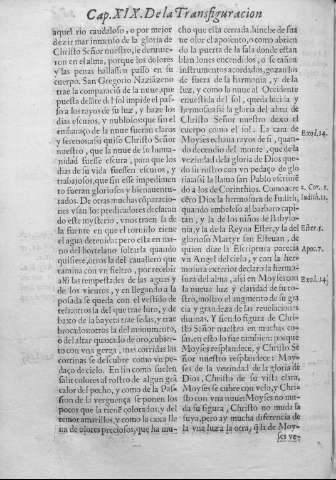 Cap. XIX. De la Transfiguracion
aquel rio caudaloso, o por mejor
dezir mar inmenso de la gloria de
Christo Señor nuestro, se detuuie-
ron en el alma, porque los dolores
y las penas hallassen passo en su
cuerpo. San Gregorio Nazianzeno
trae la comparació de la nuue, que
puesta delãte del sol impide el pas-
so a los rayos de su luz, y haze los
dias escuros, y nublosos; que sin el
embaraço de la nuue fueran claros
y serenos: assi quiso Christo Señor
nuestro, que la nuue de su huma-
nidad fuesse escura, para que los
dias de su vida fuessen escuros, y
trabajosos, que sin esse impedimen-
to fueran gloriosos y bienauentu-
rados. De otras muchas cõparacio-
nes vsan los predicadores declaran
do este mysterio, vnos traen la de
la fuente en que el tornillo tiene
el agua detenida: pero ella en ma-
no del hortelano soltarla quando
quisiere, otros la del cauallero que
camina con vn fieltro, por recebir
alli las tempestades de las aguas y
de los vientos, y en llegando a la
posada se queda con el vestido de
de baxo de la bayeta trae sedas, y
brocados: otros la del monumento,
o del altar quando de oro, cubier-
to con vna gerga, mas corridas las
cortinas se descubre como vn pe-
daço de cielo. En fin como suelen
salir colores al rostro de algun grã
calor del pecho, y como de la Pas-
sion de la verguença se ponen los
pocos que la tienẽ colorados, y del
temor amarillos, y como la caxa lle
na de olores preciosos, que ha mu-
cho que esta cerrada hinche de sua
ue olor el aposento, o como abrien
do la puerta de la sala donde estan
blandones encendidos, o se tañen
instrumentos acordados, gozan los
de fuera de la harmonia, y de la
luz, y como la nuue al Occidente
enuestida del sol, quedo luzia y
hermosa: assi la gloria del alma de
Christo Señor nuestro dexo el
cuerpo como el sol. La cara de
Moyses echaua rayos de si, quan-
do decendio del monte, que de la
vezindad de la gloria de Dios que-
do su rostro con vn pedaço de glo
ria: assi la llama san Pablo escriuiẽ
do a los de Corinthios. Como acre
cẽto Dios la hermosura de Iudith,
quando embeleso al barbaro capi-
tan, y la de los niños de Babylo-
nia, y la de la Reyna Ester, y la del
glorioso Martyr san Esteuan, de
quien dize la Escriptura parecia
vn Angel del cielo, y con la her-
mosura exterior declaro la hermo-
sura del alma, assi en Moyses con
la nueua luz y claridad de su ro-
stro, mostro el augmento de su gra
cia y grandeza de las reuelaciones
diuinas. Y siendo figura de Christo
Señor nuestro en muchas co-
sas, en esto lo fue tambien: porque
Moyses resplandece, y Christo Se
ñor nuestro resplandece: Moy-
ses de la vezindad de la gloria de
Dios, Christo de su vista clara,
Moyses se cubre con velo, y Chri
sto con vna nuue: Moyses no mu-
da su figura, Christo no muda la
suya, pero ay mucha diferencia de
la vna luz a la otra, q̃ la de Moy-
ses ve-
Exod. 34.
2. Cor. 3.
Iudith. 11.
Ester. 5.
Exod. 34.